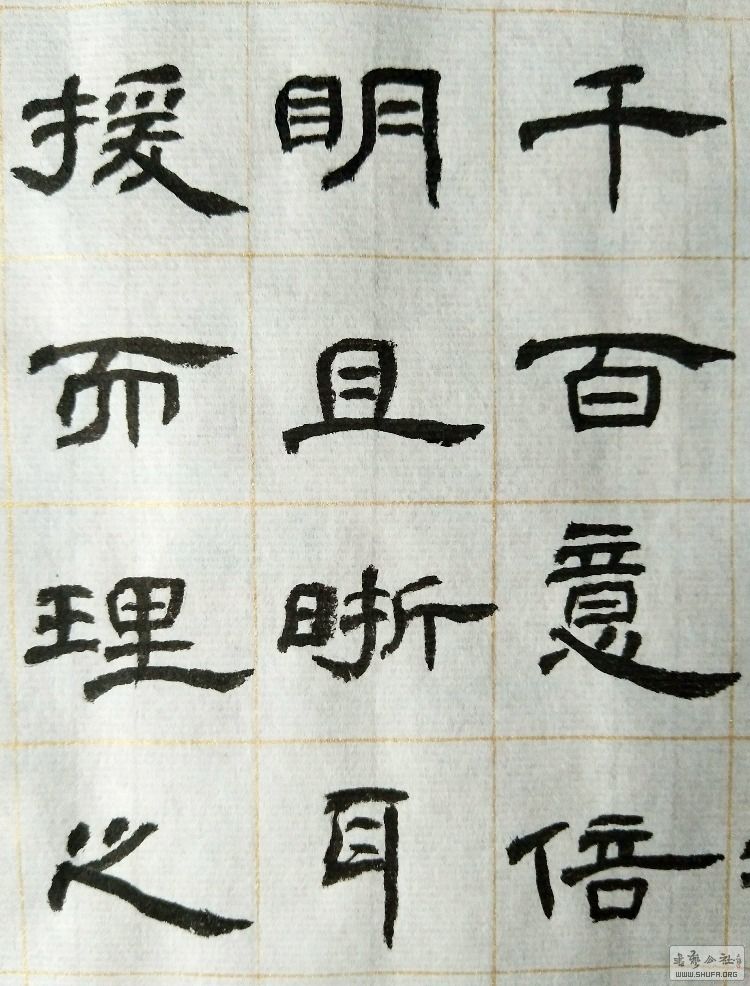 千百意倍
明且晣耳
援而理之
书艺公社
WWW.SHUFA.ORG